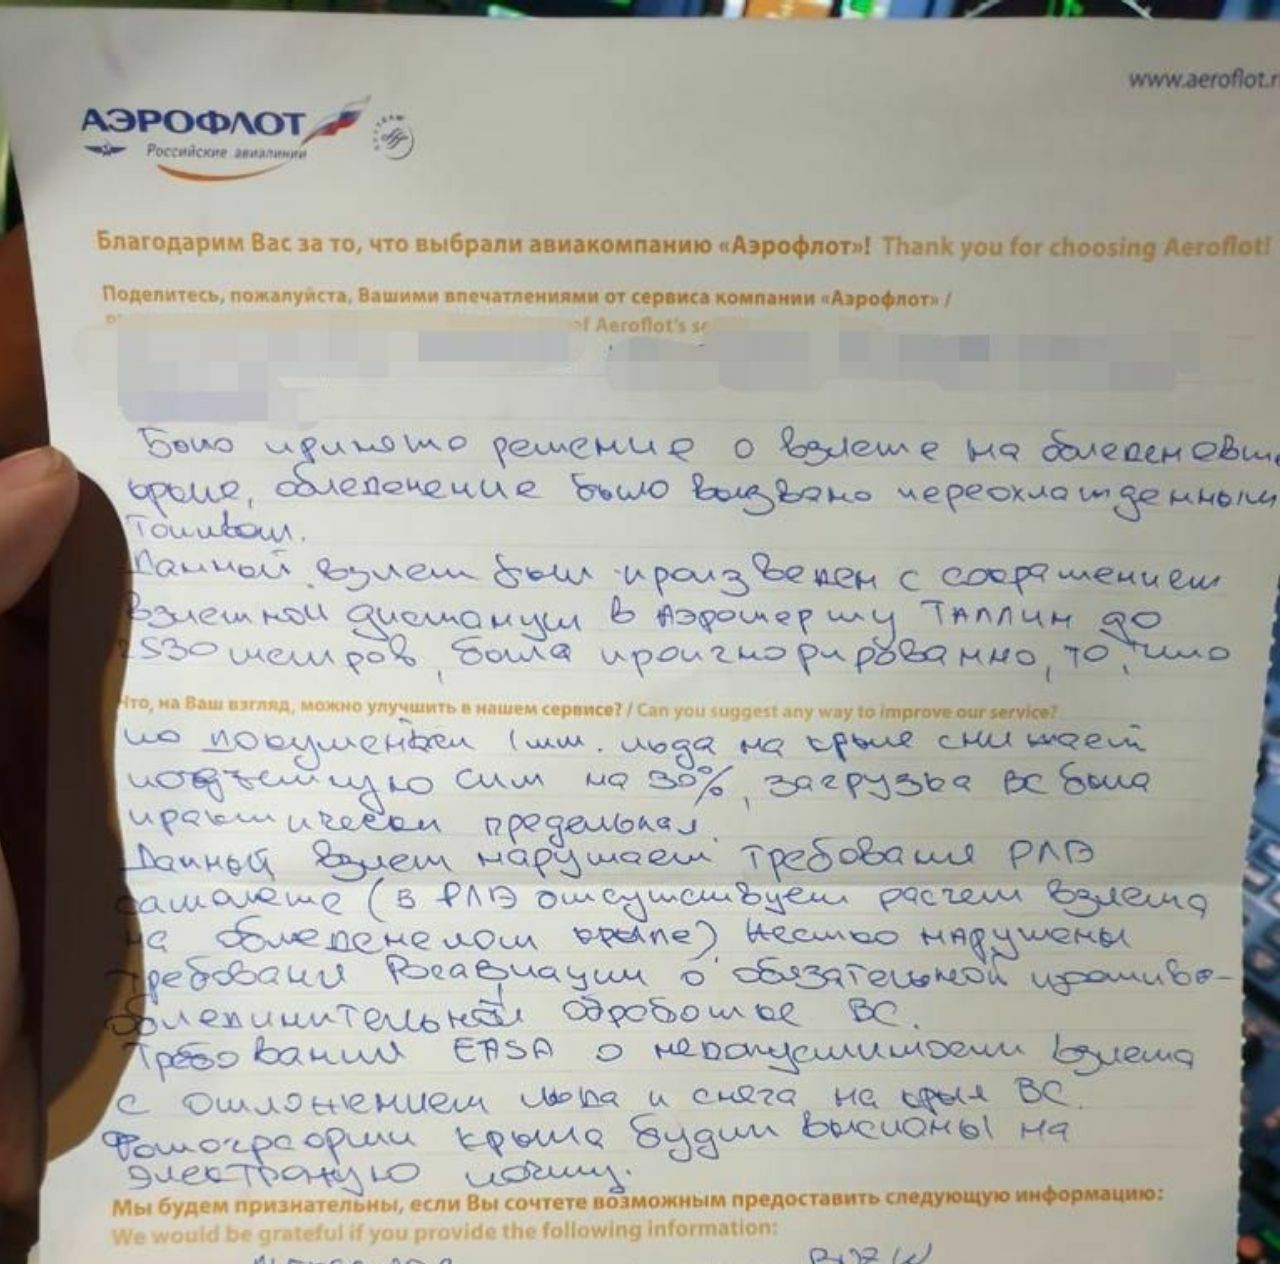 www.aeroflot.r
АЭРОФЛОТ
Российские авиалинии
Благодарим Вас за то, что выбрали авиакомпанию «Аэрофлот»! Thank you for choosing Aeroflot!
Поделитесь, пожалуйста, Вашими впечатлениями от сервиса компании «Аэрофлот» /
of Aeroflot's se
Было принято решение о взлете на обледеневш
крыле, обледенение было вызвано переохлажденным
Топливом.
Данной взлет был произведен с сокращением
взлетной дистанции в Аэропорту ТАЛЛИН до
2530 метров, была проигнорированно, то, что
Что, на Ваш взгляд, можно улучшить в нашем сервисе? / Can you suggest any way to improve our service?
по документам 1 мм. льда на крыле снижает
подъемную сил на 30%, загрузка ВС была
практически предельная.
Данный взлет нарушает требования РЛЭ
самолета (в РЛЭ отсутствует расчет взлета
на обледенелом крыле) жестко нарушены
требования Росавиации о обязательной противо-
обледенительной обработке ВС.
Требования EASA о недопустимости взлета
с отложением льда и снега на крыл ВС.
Фотографии крыла будут высланы на
электраную почту.
Мы будем признательны, если Вы сочтете возможным предоставить следующую информацию:
We would be grateful if you provide the following information: